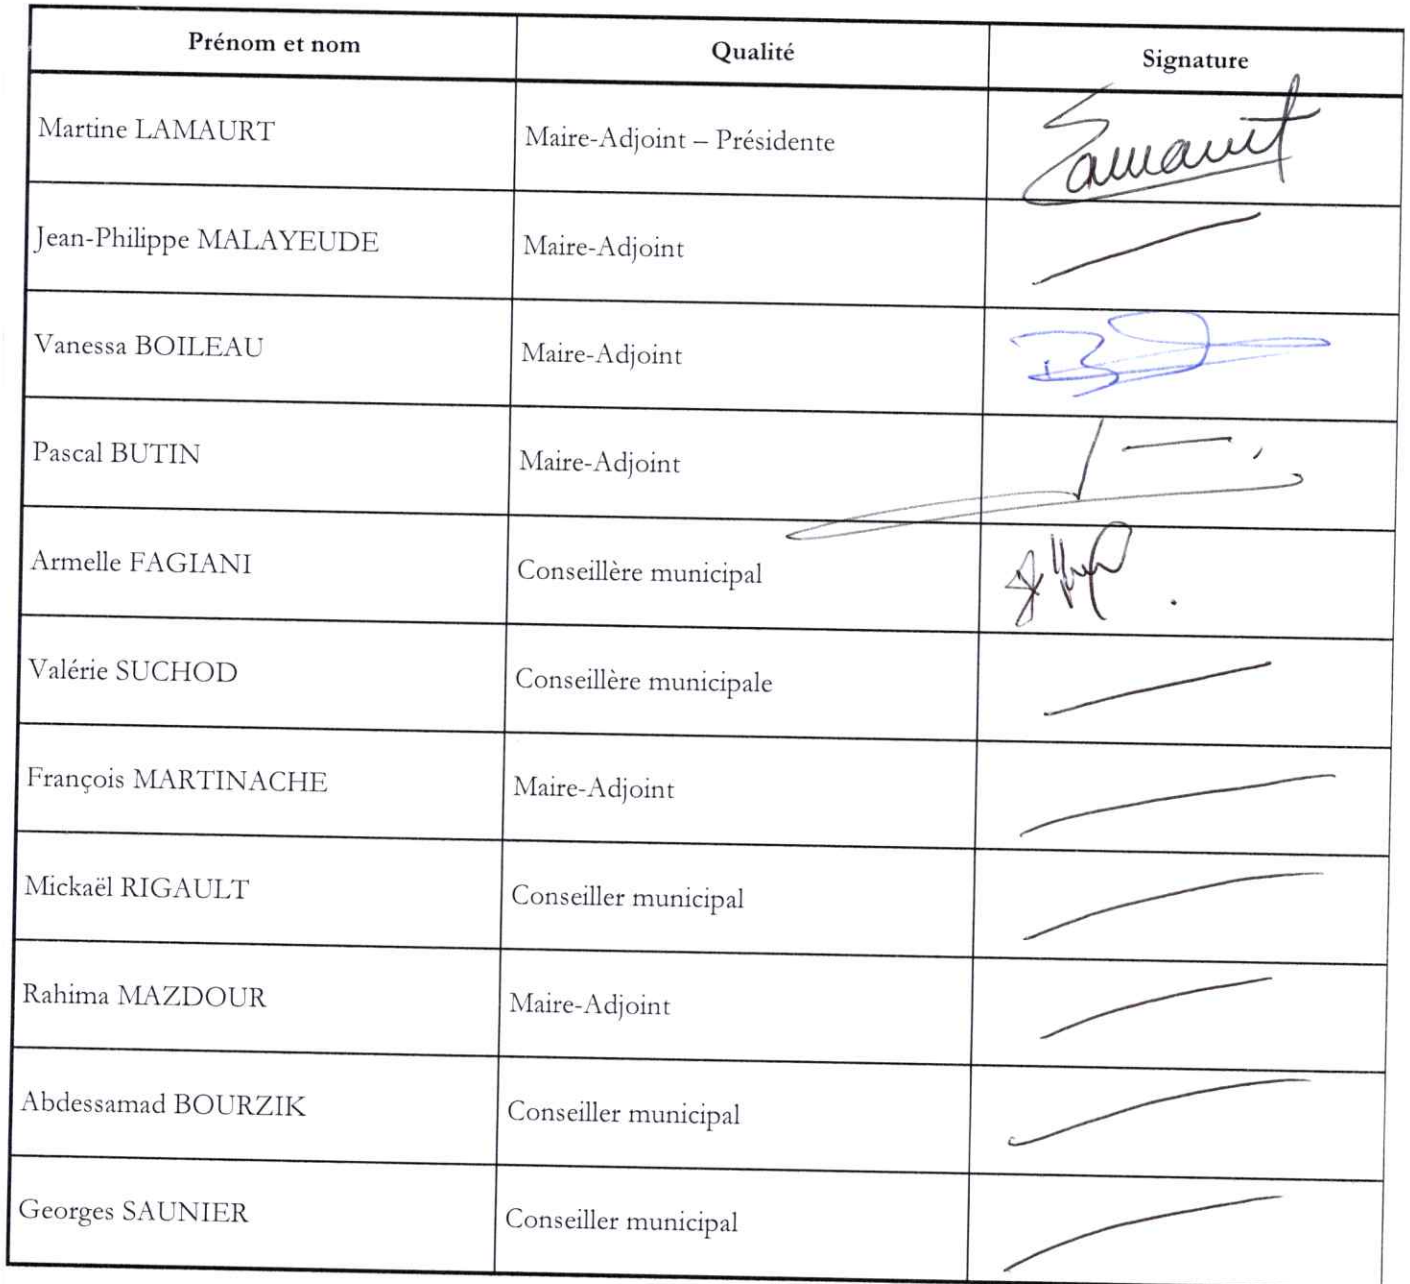 Prénom et nom Qualité Signature
Martine LAMAURT Maire-Adjoint – Présidente Lamaurt
Jean-Philippe MALAYEUDE Maire-Adjoint
Vanessa BOILEAU Maire-Adjoint
Pascal BUTIN Maire-Adjoint
Armelle FAGIANI Conseillère municipal
Valérie SUCHOD Conseillère municipale
François MARTINACHE Maire-Adjoint
Mickaël RIGAULT Conseiller municipal
Rahima MAZDOUR Maire-Adjoint
Abdessamad BOURZIK Conseiller municipal
Georges SAUNIER Conseiller municipal